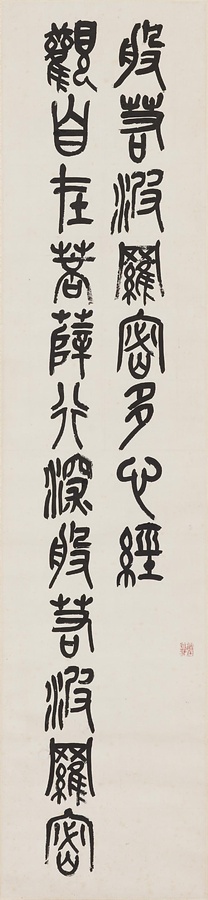 般若波羅密多心經
觀自在菩薩行深般若波羅密